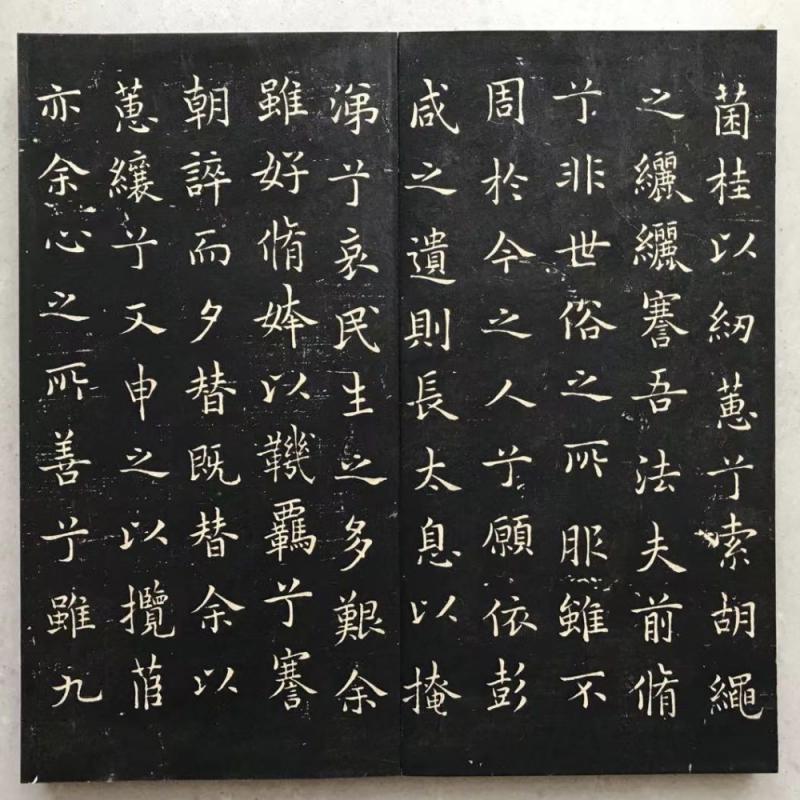 菌桂以紉蕙兮索胡繩
之纚纚謇吾法夫前脩
兮非世俗之所服雖不
周於今之人兮願依彭
咸之遺則長太息以掩
涕兮哀民生之多艱余
雖好脩姱以鞿羈兮謇
朝誶而夕替既替余以
蕙纕兮又申之以攬茝
亦余心之所善兮雖九